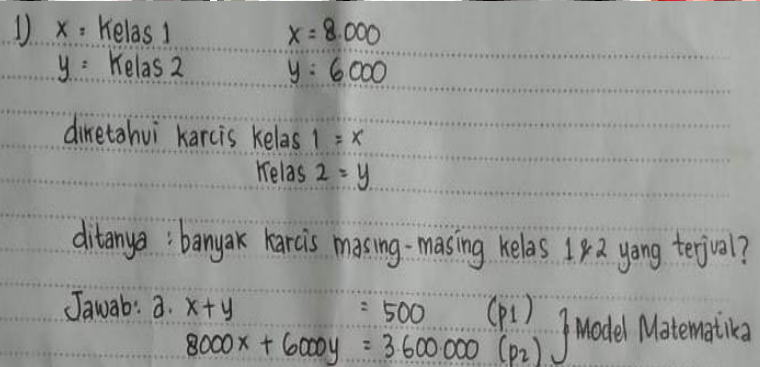 1) x = Kelas 1 x = 8.000
y = Kelas 2 y = 6000
diketahui karcis kelas 1 = x
Kelas 2 = y
ditanya : banyak karcis masing-masing kelas 1 & 2 yang terjual?
Jawab: a. x+y = 500 (p1) } Model Matematika
8000x + 6000y = 3.600.000 (p2)